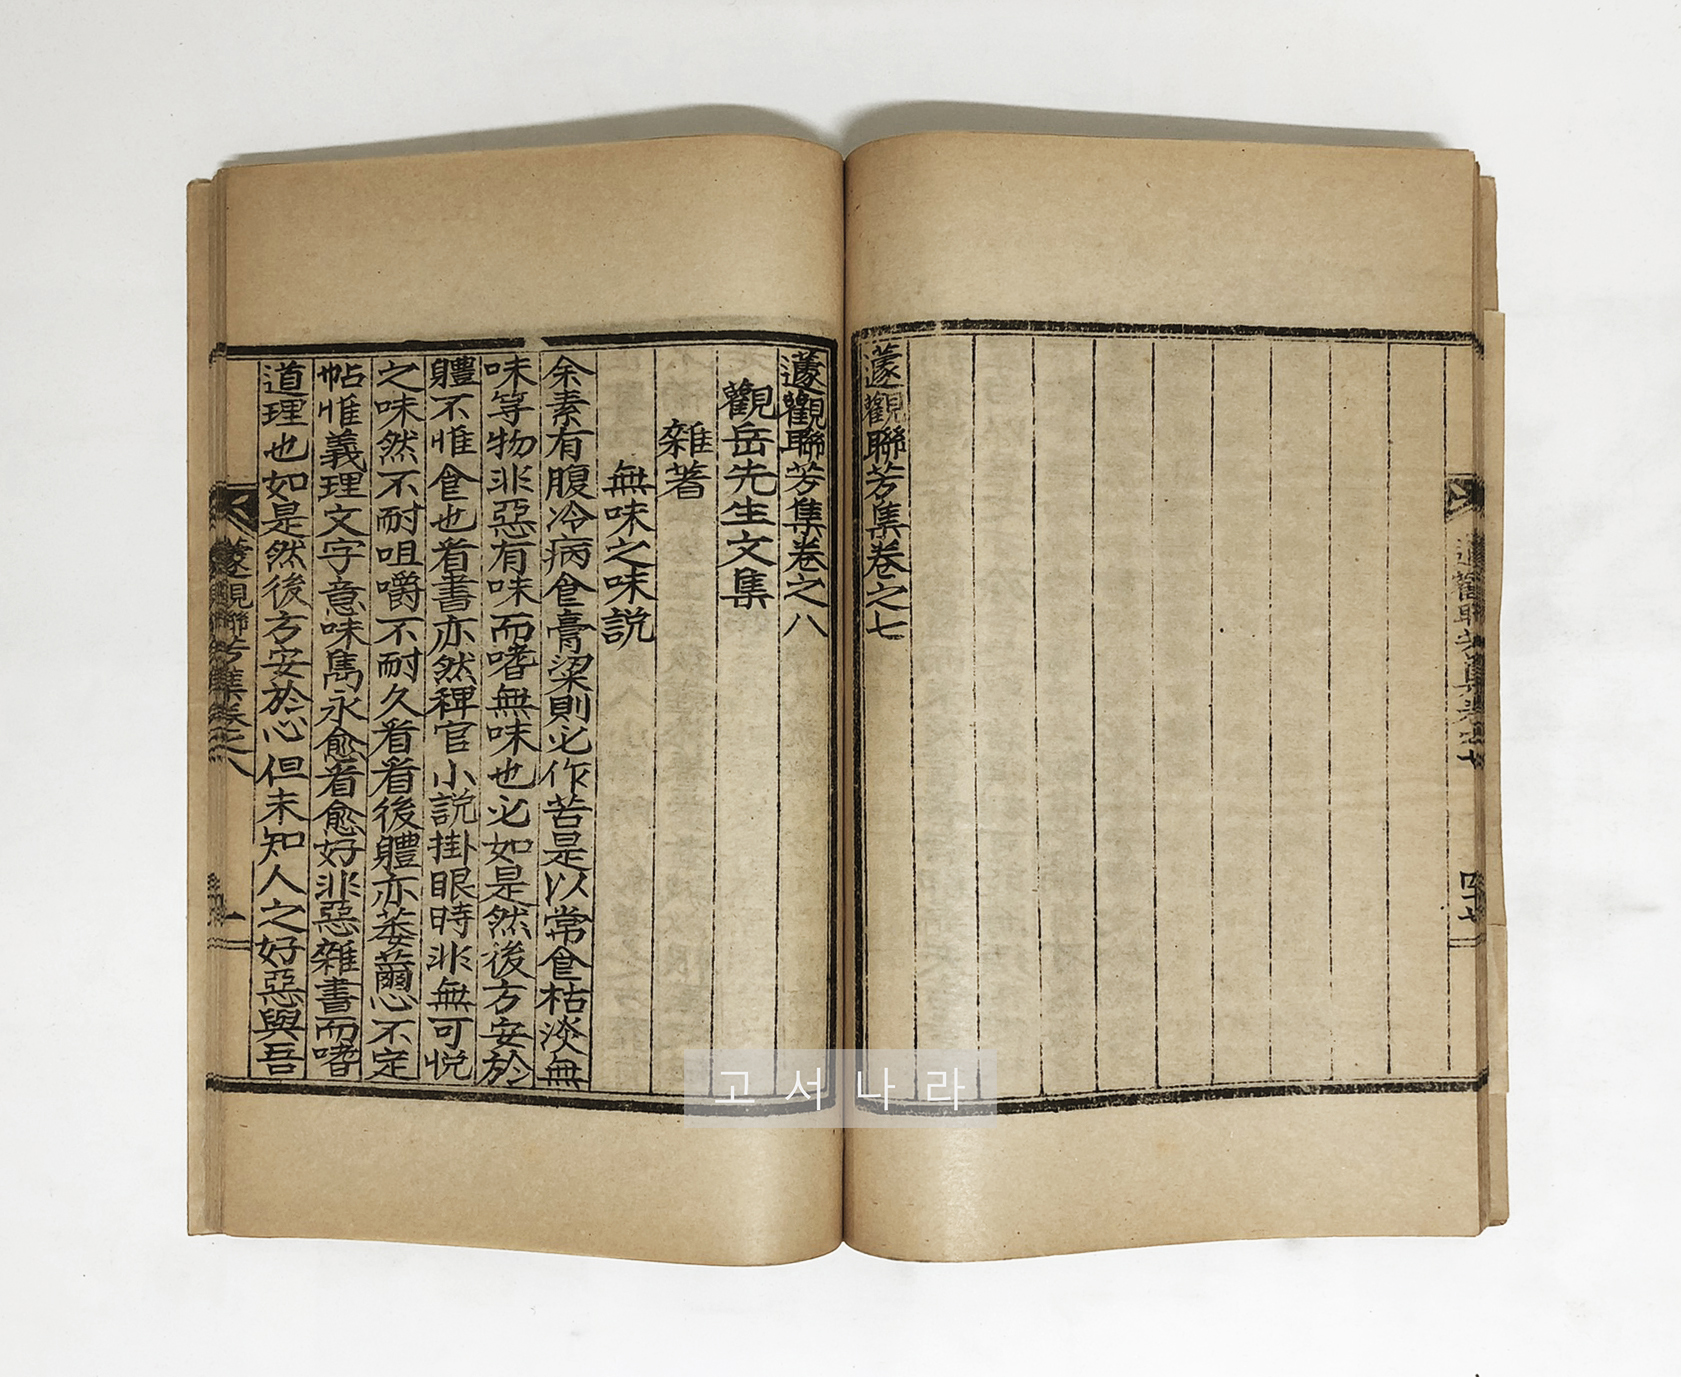 蘧觀聯芳集卷之七
蘧觀聯芳集卷之八
觀岳先生文集
雜著
無味之味説
余素有腹冷病食膏粱則必作苦是以常食枯淡無
味等物非惡有味而嗜無味也必如是然後方安於
軆不惟食也看書亦然稗官小説掛眼時非無可悦
之味然不耐咀嚼不耐久看看後軆亦萎薾心不定
帖惟義理文字意味雋永愈看愈好非惡雜書而嗜
道理也如是然後方安於心但未知人之好惡與吾
蘧觀聯芳集卷之八
一
蘧觀聯芳集卷之七
四十七
고서나라